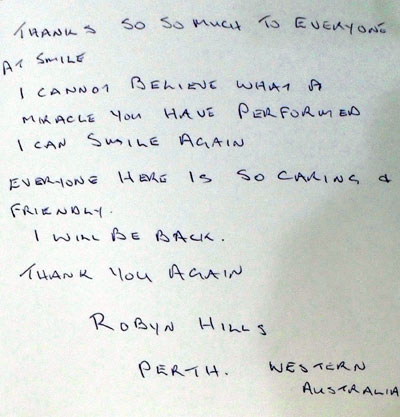 THANKS SO SO MUCH TO EVERYONE
AT SMILE
I CANNOT BELIEVE WHAT A
MIRACLE YOU HAVE PERFORMED
I CAN SMILE AGAIN
EVERYONE HERE IS SO CARING &
FRIENDLY.
I WILL BE BACK.
THANK YOU AGAIN
ROBYN HILLS
PERTH. WESTERN
AUSTRALIA